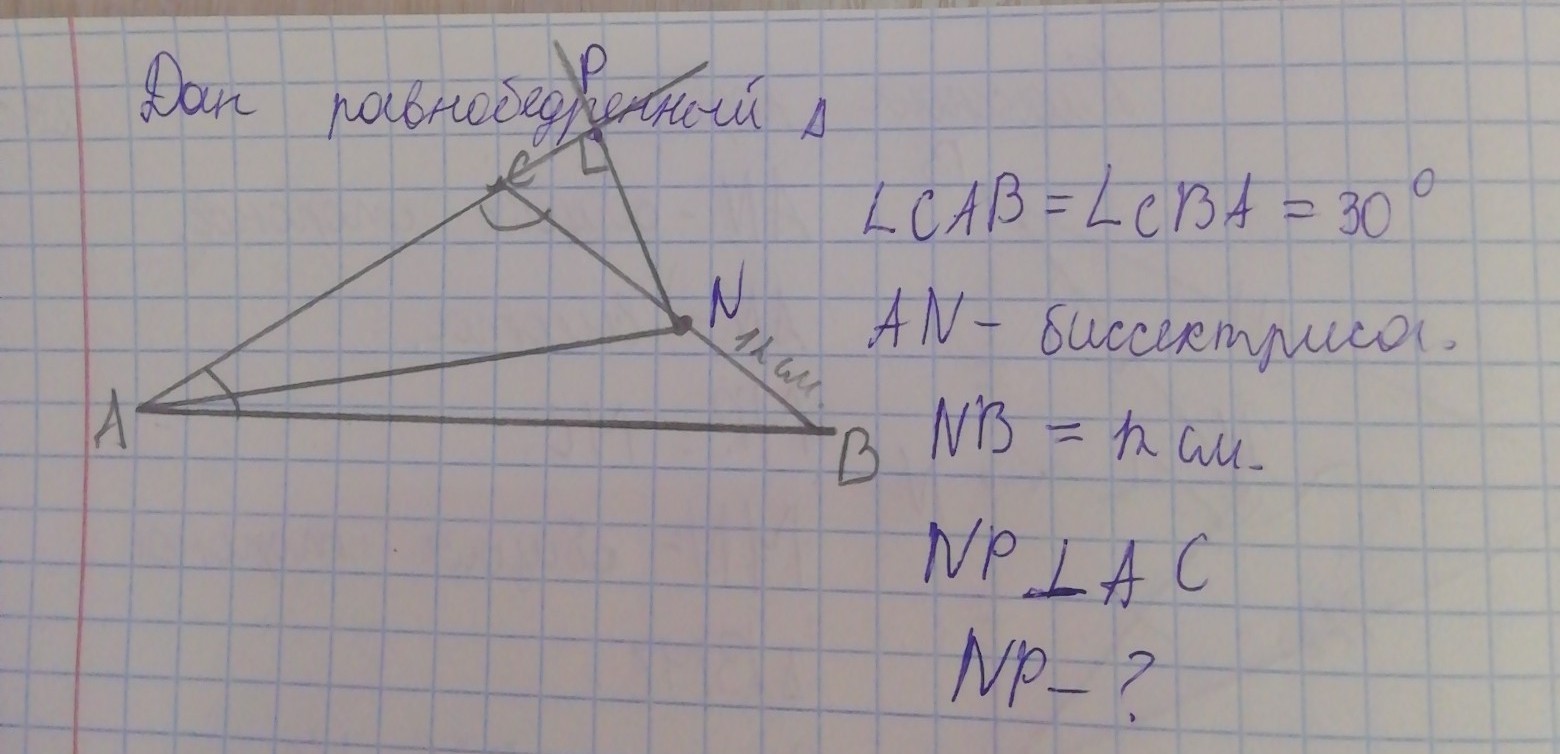 Дан равнобедренный Δ
P
C
∠CAB = ∠CBA = 30°
N
AN - биссектриса.
A
B
NB = 12 см.
NP ⊥ AC
NP - ?